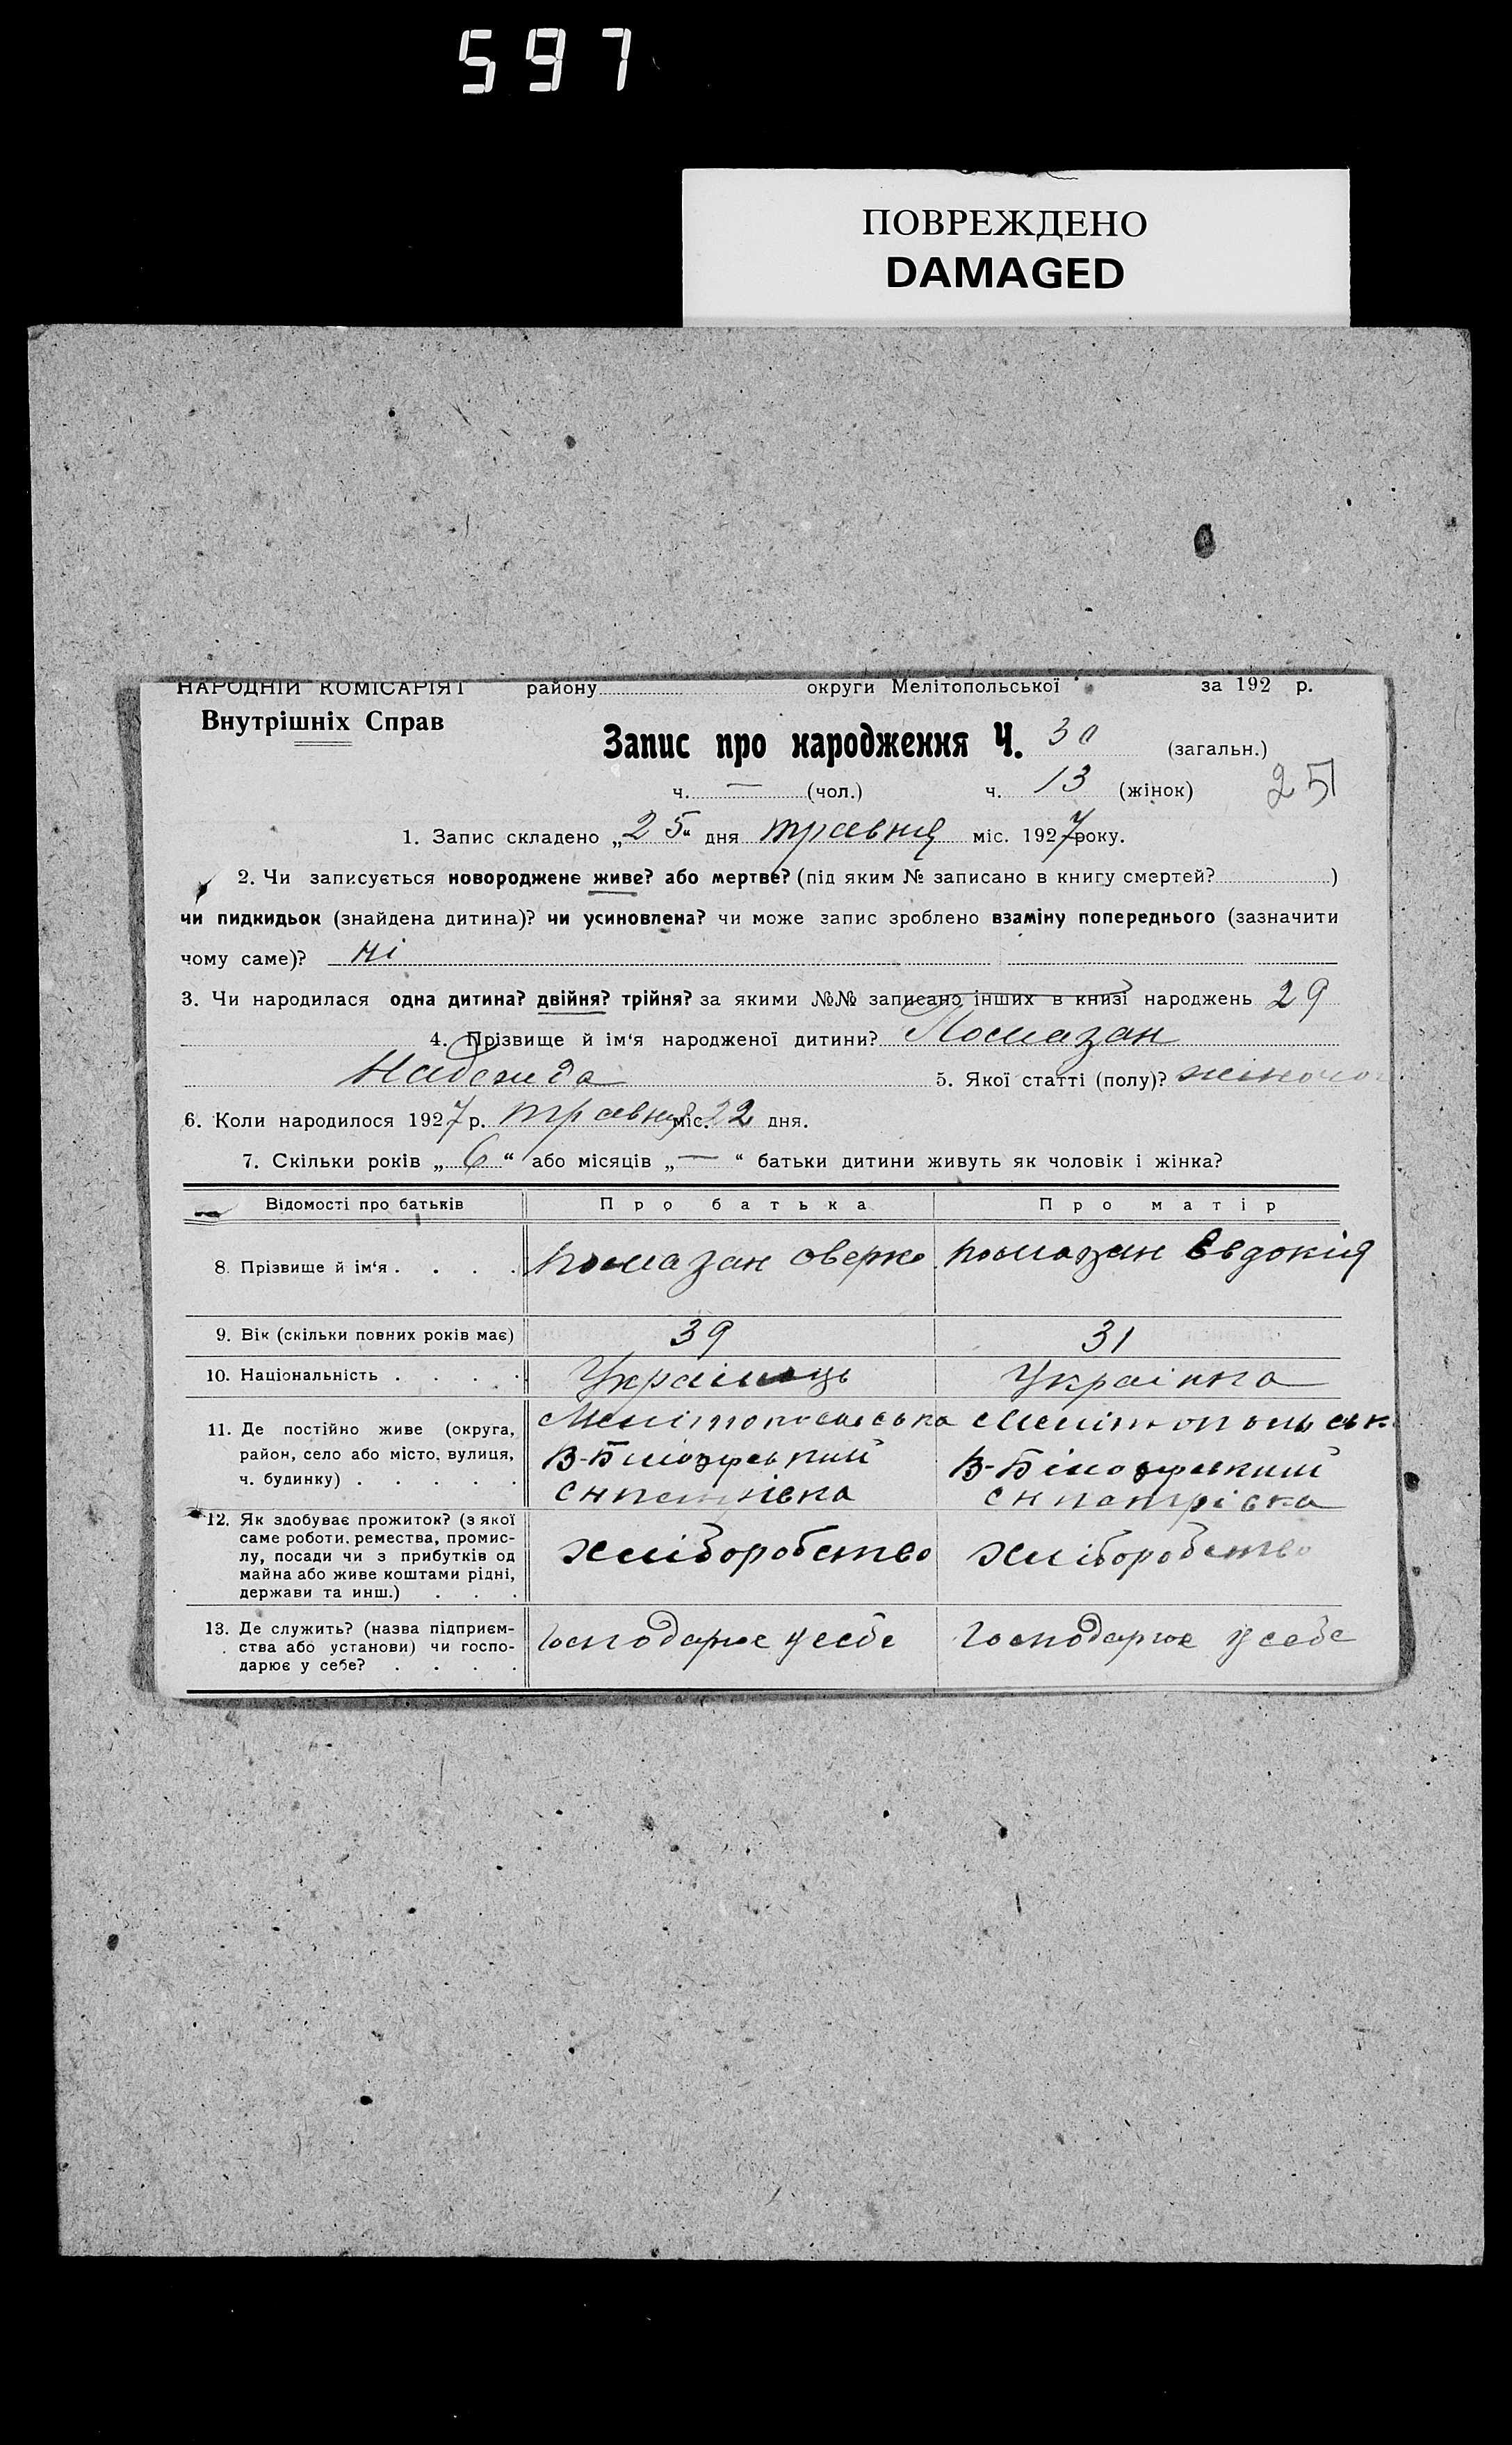 597
ПОВРЕЖДЕНО
DAMAGED
НАРОДНІЙ КОМІСАРІЯТ району округи Мелітопольської за 192 р.
Внутрішніх Справ
Запис про народження Ч. 30 (загальн.)
ч. — (чол.) ч. 13 (жінок) 25
1. Запис складено „25“ дня травня міс. 1927 року.
2. Чи записується новороджене живе? або мертве? (під яким № записано в книгу смертей? )
чи пидкидьок (знайдена дитина)? чи усиновлена? чи може запис зроблено взаміну попереднього (зазначити
чому саме)? ні
3. Чи народилася одна дитина? двійня? трійня? за якими №№ записано інших в книзі народжень 29
4. Прізвище й ім‘я народженої дитини? Помазан
Надежда 5. Якої статті (полу)? жіночої
6. Коли народилося 1927 р. травня міс. 22 дня.
7. Скільки років „6“ або місяців „—“ батьки дитини живуть як чоловік і жінка?
Відомості про батьків Про батька Про матір
8. Прізвище й ім‘я . . . . Помазан Оверко Помазан Евдокія
9. Вік (скільки повних років має) 39 31
10. Національність . . . . Украінець Украінка
11. Де постійно живе (округа, Мелітопольська Мелітопольськ
район, село або місто, вулиця, В-Білозірський В-Білозірський
ч. будинку) . . . . . с Нпетрівка с Нпетрівка
12. Як здобуває прожиток? (з якої
саме роботи, ремества, промис-
лу, посади чи з прибутків од хліборобство хліборобство
майна або живе коштами рідні,
держави та инш.) . . .
13. Де служить? (назва підприєм- господарює у себе господарює у себе
ства або установи) чи госпо-
дарює у себе? . . . .